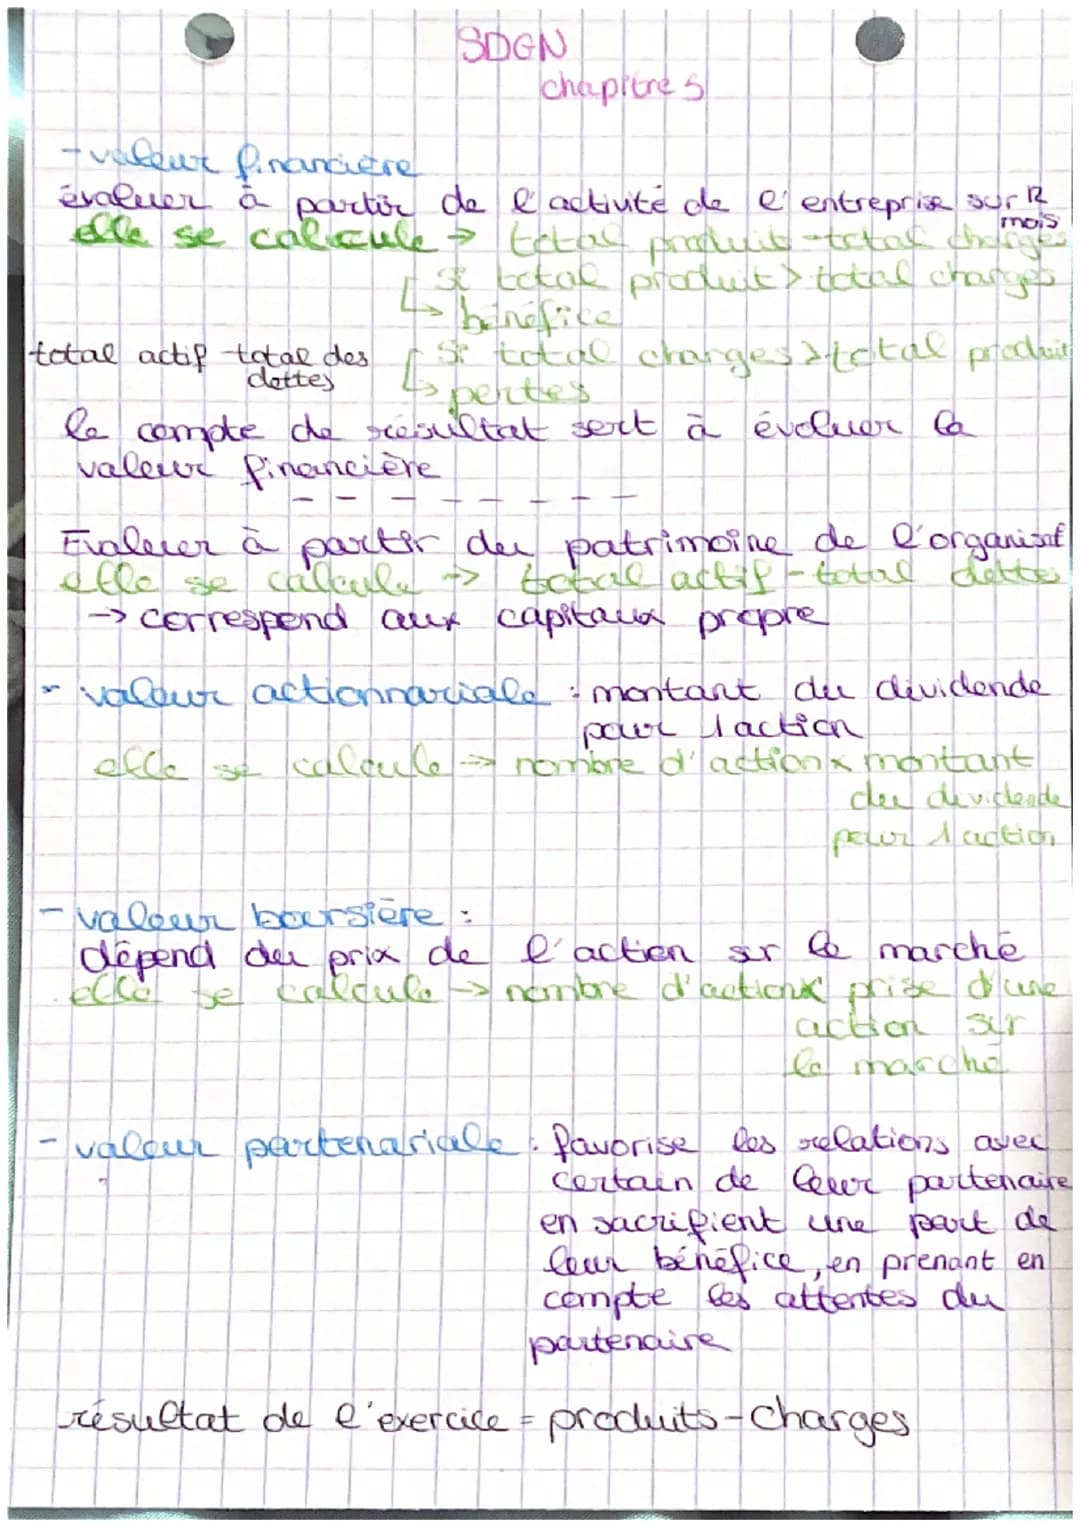 SDGN
chapitre 5
- valeur financière
évaluer à partir de l'activité de l'entreprise sur 12 mois
elle se calcule → total produit - total charges
Si total produit > total charges
↳ bénéfice
total actif - total des dettes
Si total charges > total produit
↳ pertes
le compte de résultat sert à évoluer la
valeur financière
- - - - - - -
Evaluer à partir du patrimoine de l'organisat
elle se calcule → total actif - total dettes
→ correspond aux capitaux propre
- valeur actionnariale : montant du dividende
pour 1 action
elle se calcule → nombre d'action x montant
du dividende
pour 1 action
- valeur boursière :
dépend du prix de l'action sur le marché
elle se calcule → nombre d'action x prise d'une
action sur
le marché
- valeur partenariale : favorise les relations avec
certain de leur partenaire
en sacrifient une part de
leur bénéfice, en prenant en
compte les attentes du
partenaire
résultat de l'exercice = produits - charges